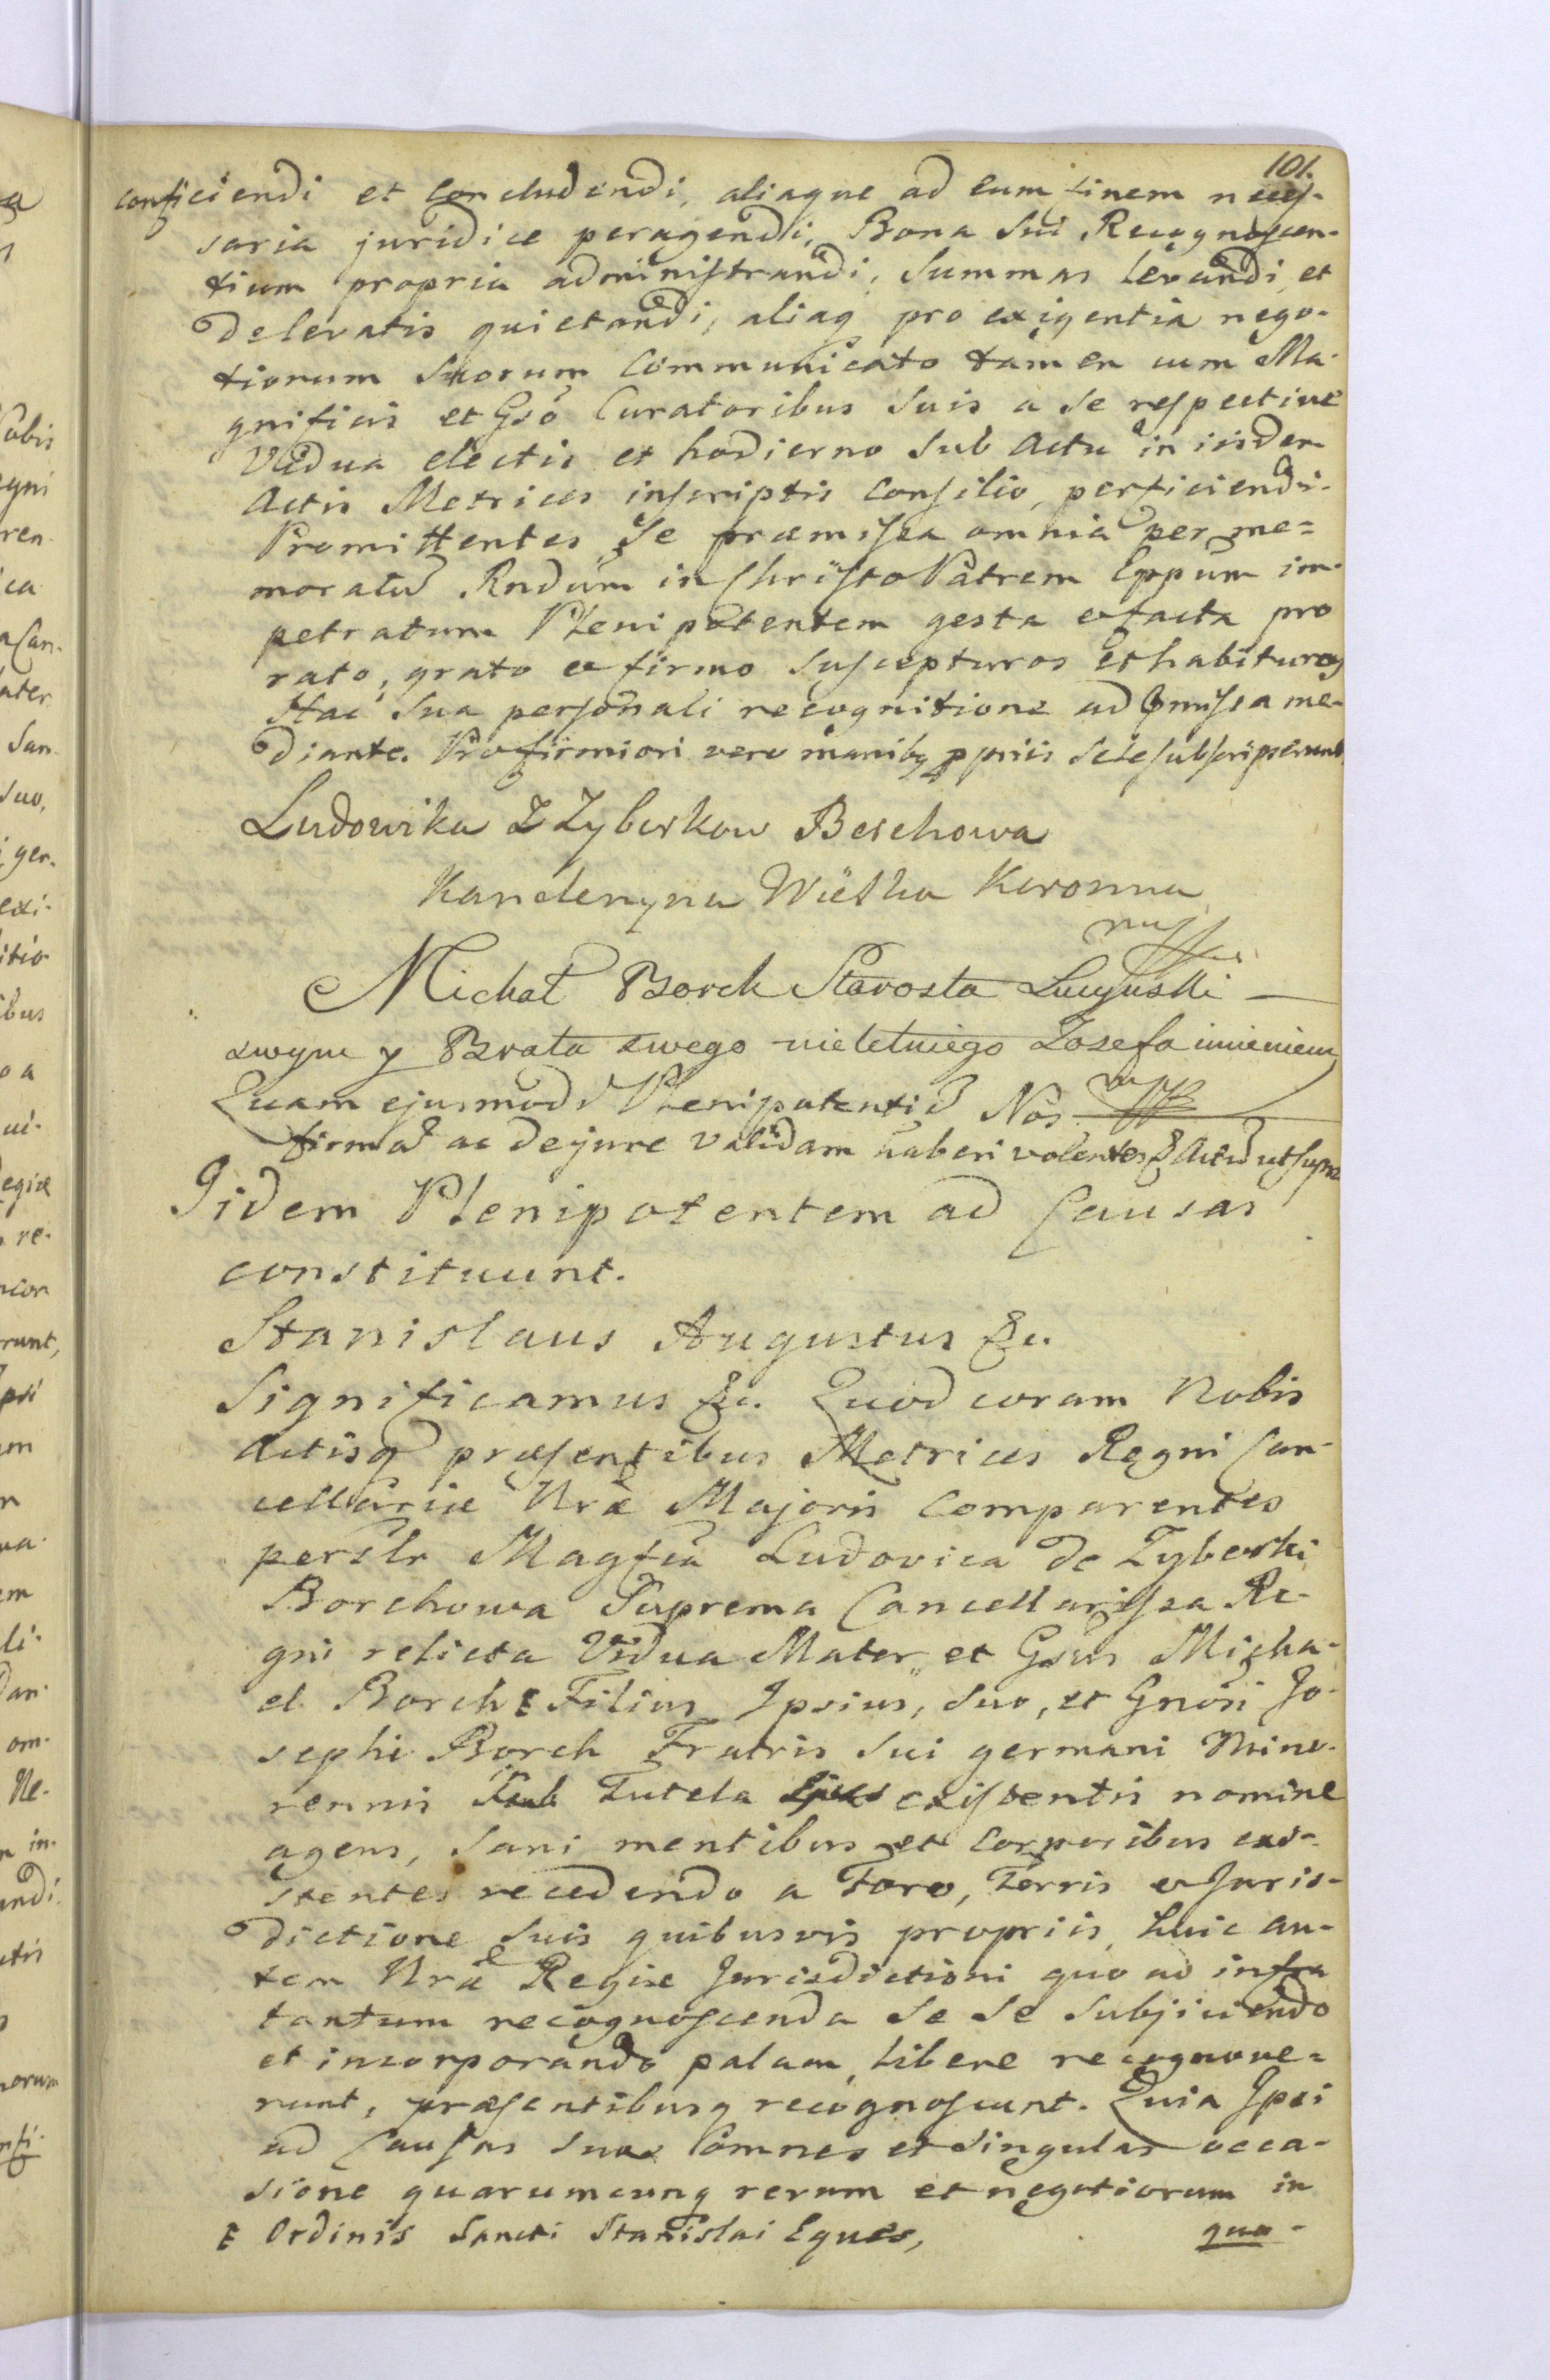 101.
conficiendi et concludendi, aliaque ad eum finem neces-
saria juridice peragendi, Bona sui Recognoscen-
tium propria administrandi, Summas levandi, et
de levatis quietandi, aliaq pro exigentia nego-
tiorum Suorum Communicato tamen cum Ma-
gnificis et Gso Curatoribus Suis a Se respective
Vidua electis et hodierno Sub Actu in iisdem
Actis Metrices inscriptis Consilio, perficiendi.
Promittentes Se præmissa omnia per me=
moratu Rndum in Christo Patrem Eppum im-
petratum Plenipotentem gesta et facta pro
rato, grato et firmo Suscepturos et habituros
Hac Sua personali recognitione ad præmissa me-
diante. Pro firmiori vero manibq ppriis Sese subscripserunt
Ludowika Z Zyberkow Borchowa
Kanclerzyna Wielka Koronna
mp
Michał Borch Starosta Lucynski —
swym y Brata swego nieletniego Jozefa imieniem
mp
Quam ejusmodi Plenipotentia Nos
firma ac de jure Validam haberi volentes &c Actu ut supra
Iidem Plenipotentem ad Causas
constituunt.
Stanislaus Augustus &c.
Significamus &c. Quod coram Nobis
Actisq præsentibus Metrices Regni Can-
cellariæ Nræ Majoris Comparentes
persltr Magfca Ludovica de Zyberki
Borchowa Suprema Cancellarissa Re-
gni relicta Vidua Mater, et Gsus Micha-
el Borch Filius Ipsius, Suo, et Gnosi Jo-
sephi Borch Fratris Sui germani Mino-
rennis Sub Tutela existentis nomine
agens, Sani mentibus et Corporibus exi-
stentes recedendo a Foro, Terris et Juris-
dictione Suis quibusvis propriis, huic au-
tem Nræ Regiæ Jurisdictioni quo ad infra
tantum recognoscenda Se Se Subjiciendo
et incorporando palam, libere recognove=
runt, præsentibusq recognoscunt. Quia Ipsi
ad Causas Suas omnes et Singulas occa-
sione quarumcunq rerum et negotiorum in
Ordinis Sancti Stanislai Eques,
quo-